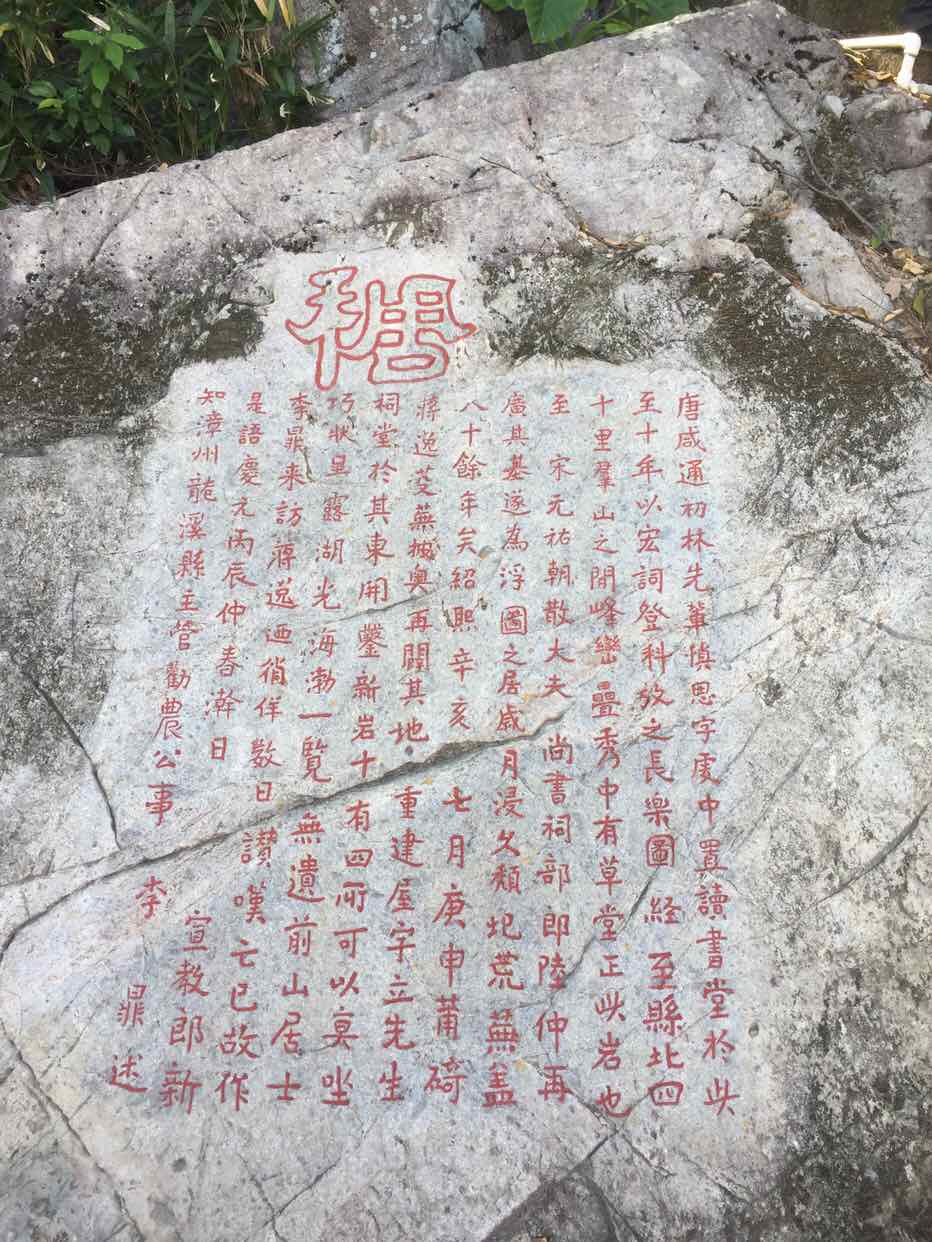 唐咸通初林先輩慎思字虔中置讀書堂於此
至十年以宏詞登科攷之長樂圖経至縣北四
十里羣山之間峰巒疊秀中有草堂正此岩也
至宋元祐朝散大夫尚書祠部郎陸仲再
廣其基遂為浮圖之居歲月浸久頽圯荒蕪盖
八十餘年矣紹熙辛亥七月庚申莆碕
蒋逸芟蕪披奥再闢其地重建屋宇立先生
祠堂於其東開鑿新岩十有四所可以㝠坐
巧状呈露湖光海渤一覧無遺前山居士
李鼎来訪蒋逸迺徜徉数日讃嘆亡已故作
是語慶元丙辰仲春澣日宣教郎新
知漳州龍溪縣主管勸農公事李鼎述